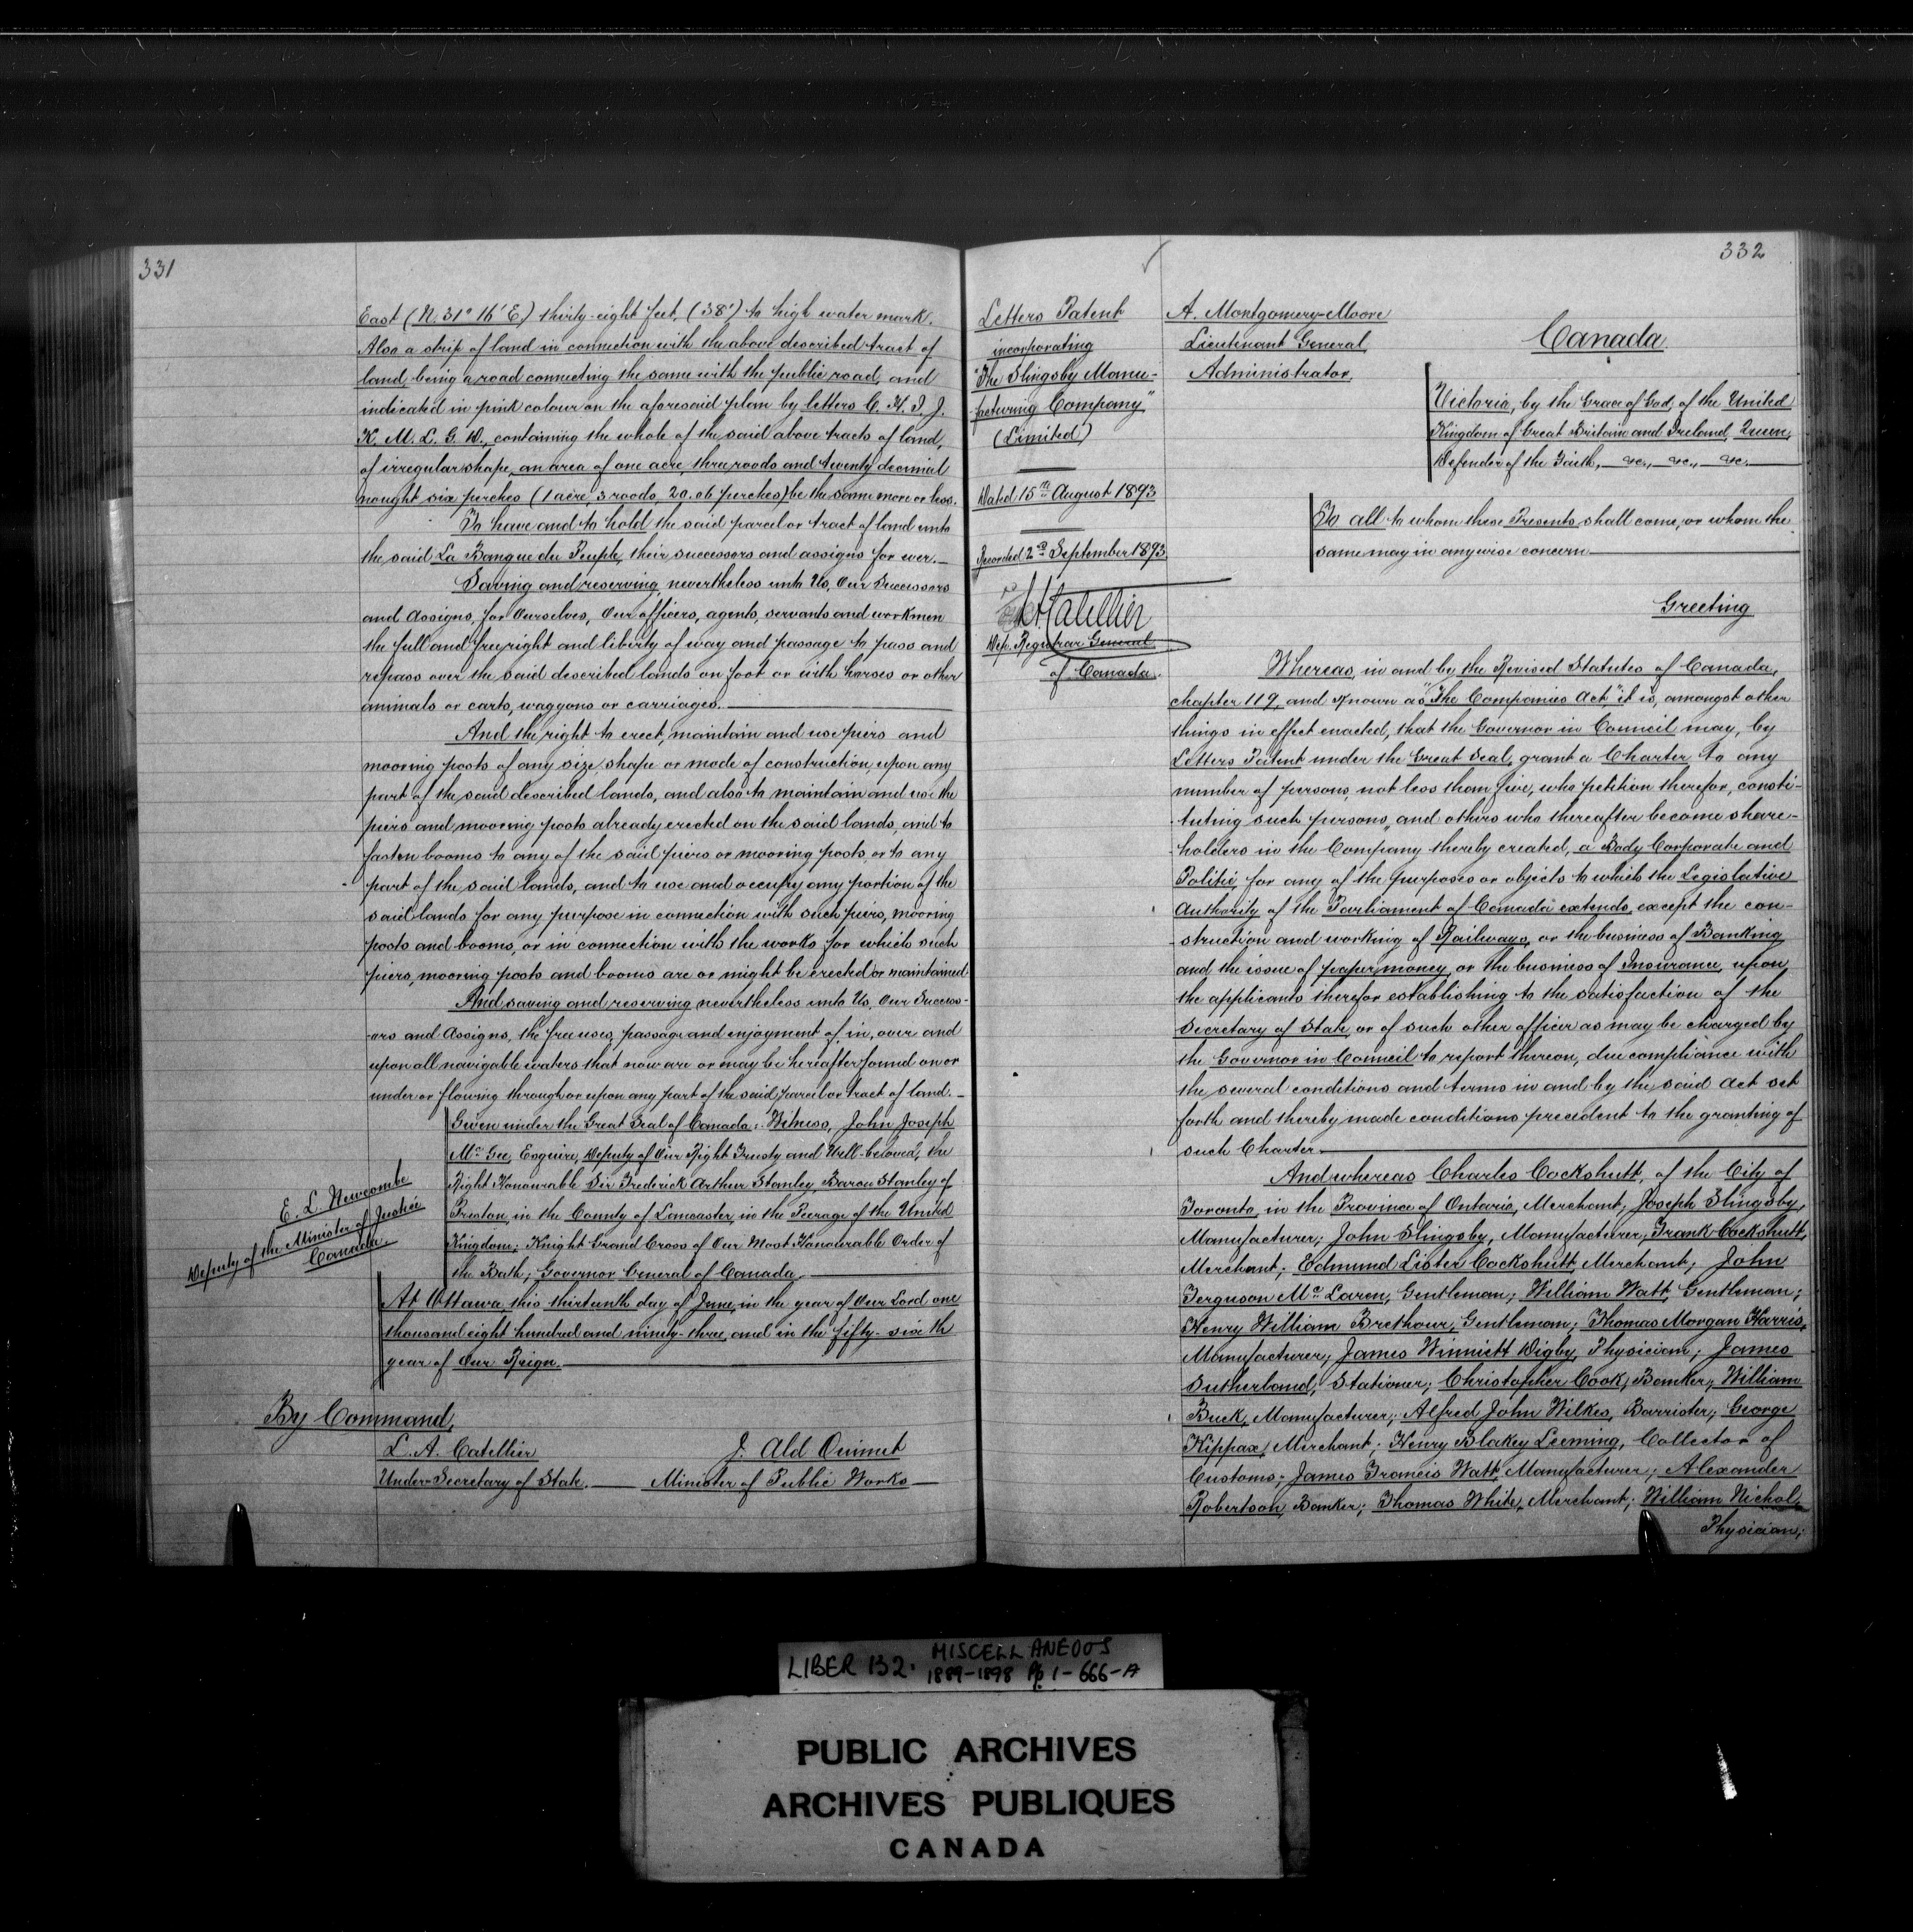 331
East (N. 31° 16' E.) thirty-eight feet, (38') to high water mark.
Also a strip of land in connection with the above described tract of
land, being a road connecting the same with the public road, and
indicated in pink colour on the aforesaid plan by letters C. H. I. J.
K. M. L. G. D., containing the whole of the said above tracts of land,
of irregular shape, an area of one acre, three roods and twenty decimal
nought six perches (1 acre, 3 roods, 20.06 perches) be the same more or less.
To have and to hold the said parcel or tract of land unto
the said La Banque du Peuple, their successors and assigns for ever.—
Saving and reserving, nevertheless unto Us, Our Successors
and Assigns, for Ourselves, Our officers, agents, servants and workmen
the full and free right and liberty of way and passage to pass and
repass over the said described lands on foot or with horses or other
animals or carts, waggons or carriages.—
And the right to erect, maintain and use piers and
mooring posts of any size, shape or mode of construction, upon any
part of the said described lands, and also to maintain and use the
piers and mooring posts already erected on the said lands, and to
fasten booms to any of the said piers or mooring posts, or to any
part of the said lands, and to use and occupy any portion of the
said lands for any purpose in connection with such piers, mooring
posts and booms, or in connection with the works for which such
piers, mooring posts and booms are or might be erected or maintained.
And saving and reserving nevertheless unto Us, Our Success-
-ors and Assigns, the free uses, passage and enjoyment of, in, over and
upon all navigable waters that now are or may be hereafter found on or
under or flowing through or upon any part of the said parcel or tract of land.—
Given under the Great Seal of Canada: Witness, John Joseph
Mc Gee, Esquire, Deputy of Our Right Trusty and Well-beloved, the
Right Honourable Sir Frederick Arthur Stanley, Baron Stanley of
Preston, in the County of Lancaster, in the Peerage of the United
Kingdom; Knight Grand Cross of Our Most Honourable Order of
the Bath; Governor General of Canada.—
E. L. Newcombe
Deputy of the Minister of Justice
Canada
At Ottawa, this thirteenth day of June, in the year of Our Lord one
thousand eight hundred and ninety-three, and in the fifty-sixth
year of Our Reign.—
By Command,
L. A. Catellier
Under-Secretary of State.—
J. Ald Ouimet
Minister of Public Works—
332
Letters Patent
incorporating
"The Slingsby Manu-
-facturing Company"
(Limited)
Dated 15th August 1893
Recorded 2nd September 1893
L A Catellier
Dep. Registrar General
of Canada.
A. Montgomery-Moore
Lieutenant General
Administrator.
Canada.
Victoria, by the Grace of God, of the United
Kingdom of Great Britain and Ireland, Queen,
Defender of the Faith, &c., &c., &c.—
To all to whom these Presents shall come, or whom the
same may in anywise concern—
Greeting
Whereas, in and by the Revised Statutes of Canada,
chapter 119, and known as "The Companies Act," it is, amongst other
things in effect enacted, that the Governor in Council may, by
Letters Patent under the Great Seal, grant a Charter to any
number of persons, not less than five, who petition therefor, consti-
-tuting such persons, and others who thereafter become share-
-holders in the Company thereby created, a Body Corporate and
Politic, for any of the purposes or objects to which the Legislative
Authority of the Parliament of Canada extends, except the con-
-struction and working of Railways, or the business of Banking
and the issue of paper money, or the business of Insurance, upon
the applicants therefor establishing to the satisfaction of the
Secretary of State, or of such other officer as may be charged by
the Governor in Council to report thereon, due compliance with
the several conditions and terms in and by the said Act set
forth and thereby made conditions precedent to the granting of
such Charter.—
And whereas Charles Cockshutt, of the City of
Toronto, in the Province of Ontario, Merchant; Joseph Slingsby,
Manufacturer; John Slingsby, Manufacturer; Frank Cockshutt,
Merchant; Edmund Lister Cockshutt, Merchant; John
Ferguson Mc Laren, Gentleman; William Watt, Gentleman;
Henry William Brethour, Gentleman; Thomas Morgan Harris,
Manufacturer; James Winniett Digby, Physician; James
Sutherland, Stationer; Christopher Cook, Banker; William
Buck, Manufacturer; Alfred John Wilkes, Barrister; George
Hippax, Merchant; Henry Blakey Leeming, Collector of
Customs; James Francis Watt, Manufacturer; Alexander
Robertson, Banker; Thomas White, Merchant; William Nichol,
Physician;
LIBER 132. MISCELLANEOUS
1889-1898 Pp 1-666-A
PUBLIC ARCHIVES
ARCHIVES PUBLIQUES
CANADA